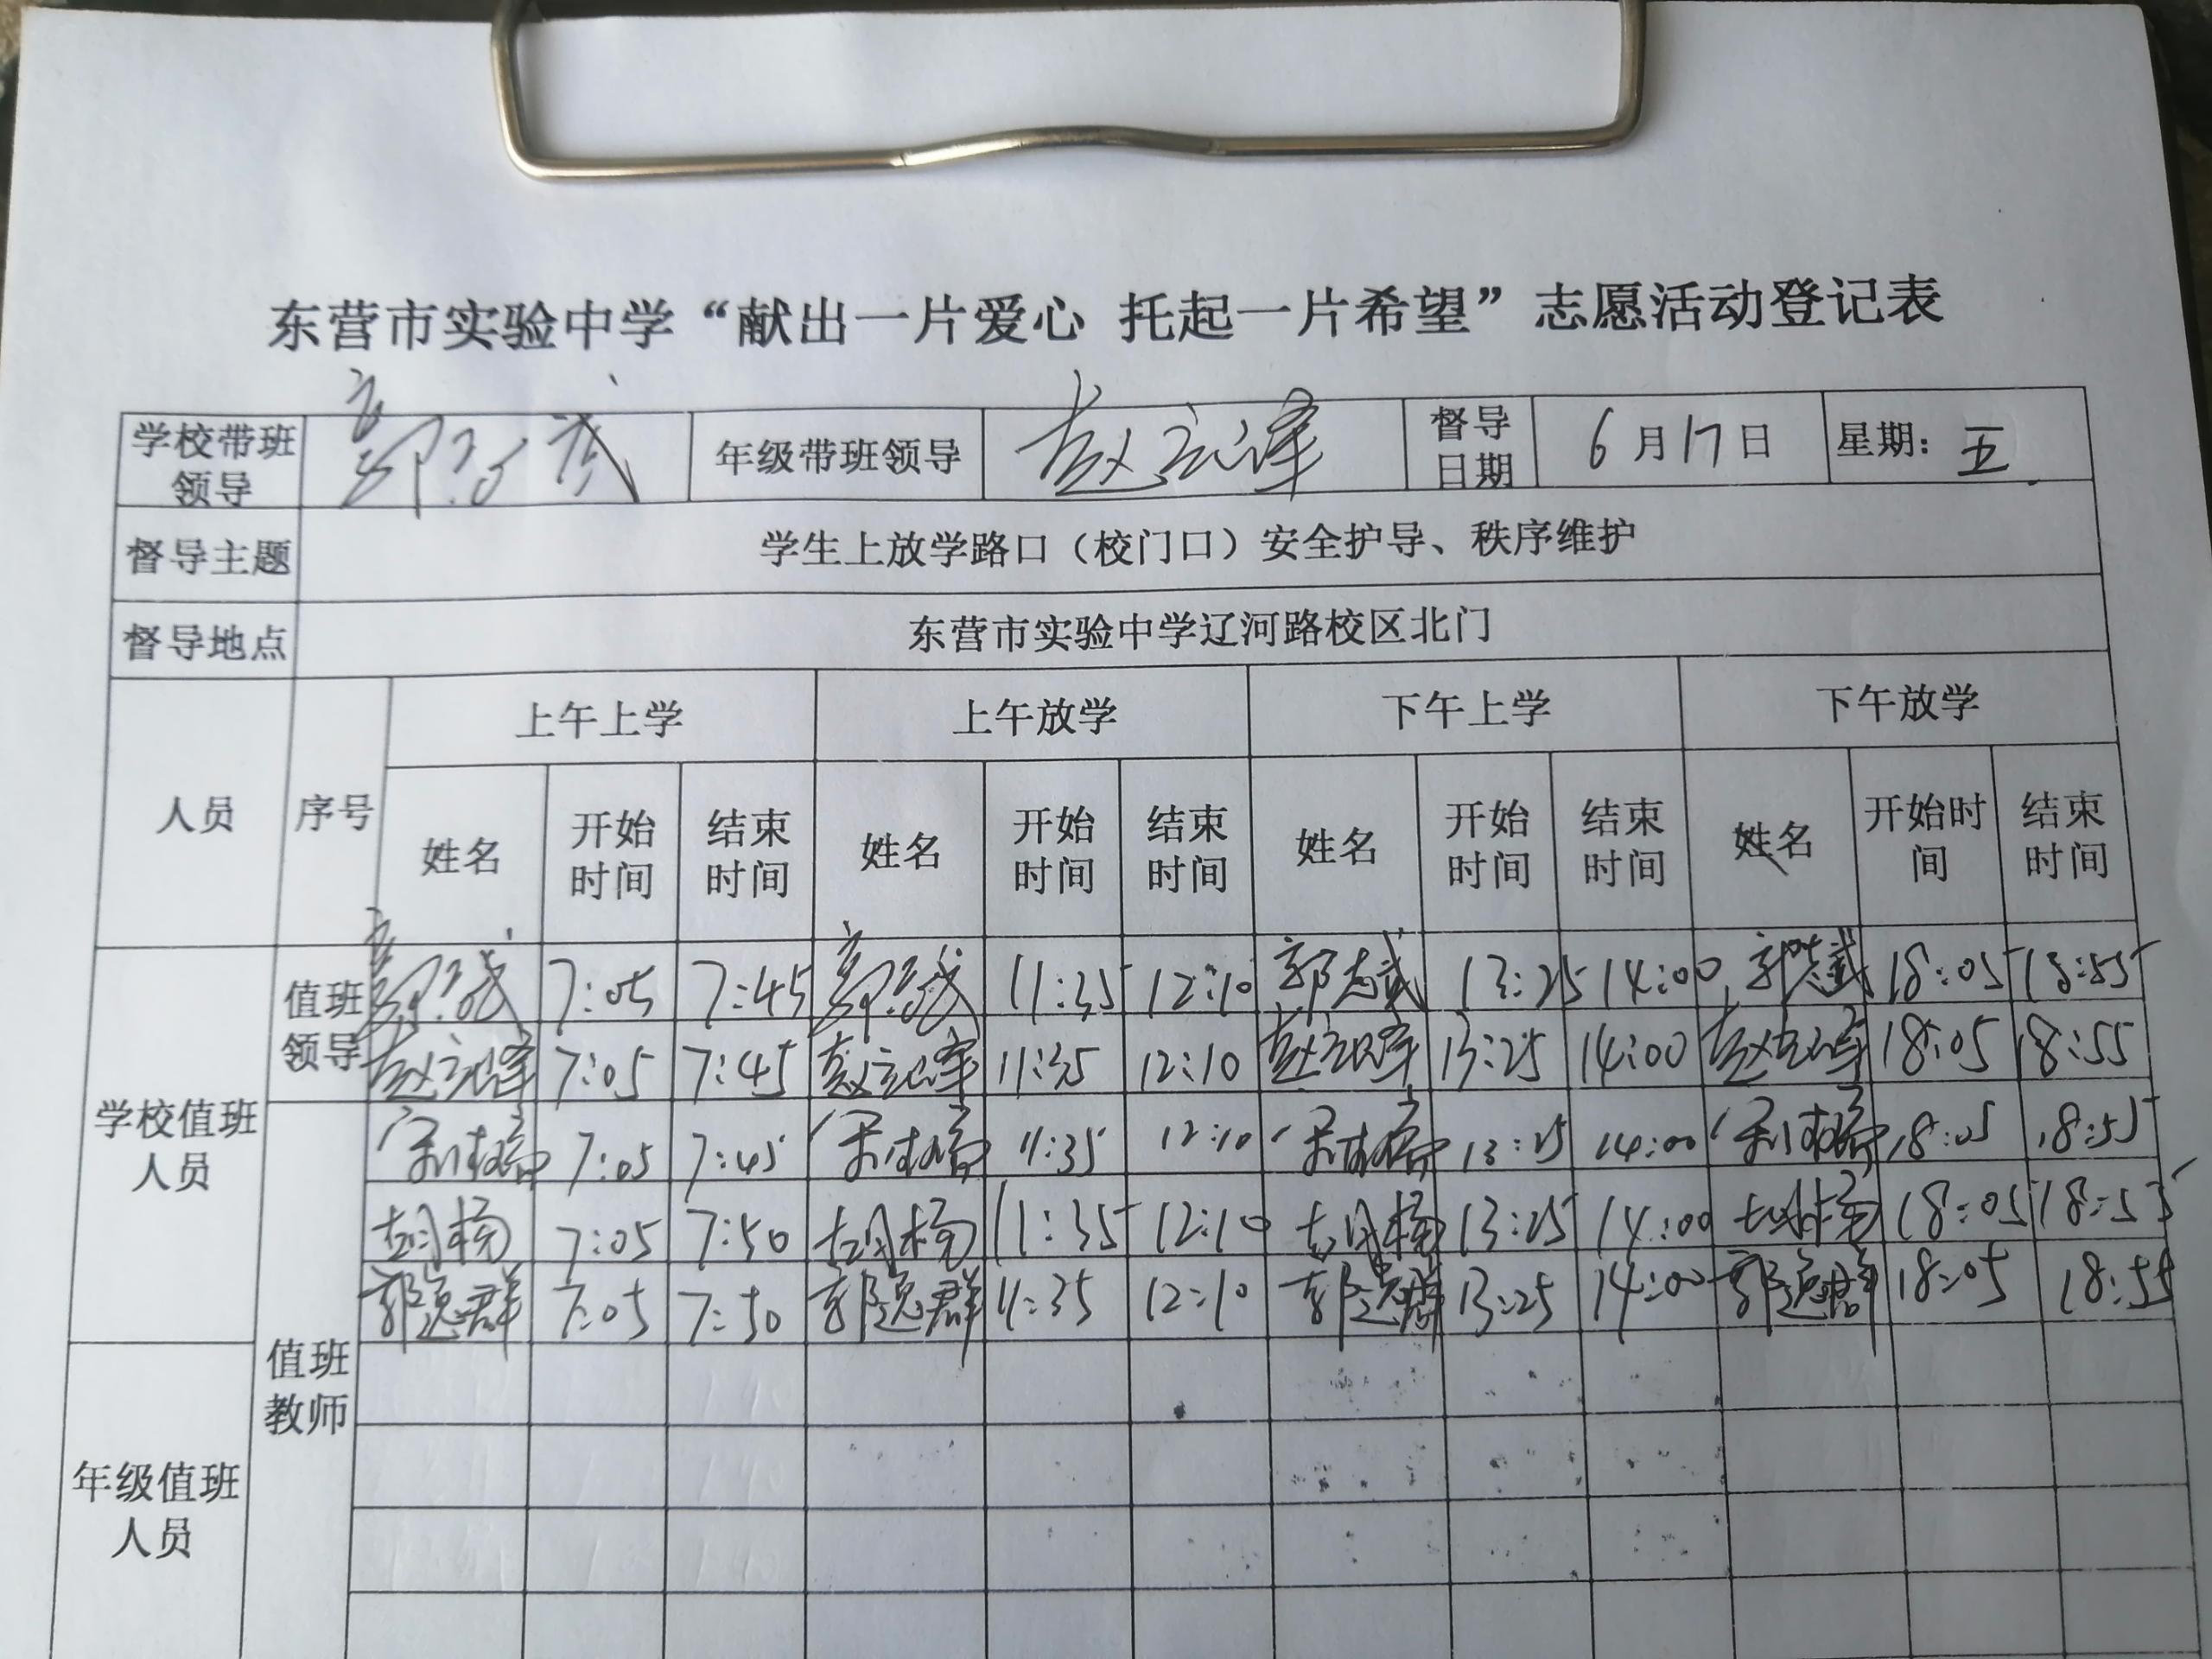 东营市实验中学“献出一片爱心 托起一片希望”志愿活动登记表
学校带班领导 郭志武 年级带班领导 赵 督导日期 6月17日 星期：五
督导主题 学生上放学路口（校门口）安全护导、秩序维护
督导地点 东营市实验中学辽河路校区北门
人员 序号 上午上学 上午放学 下午上学 下午放学
姓名 开始时间 结束时间 姓名 开始时间 结束时间 姓名 开始时间 结束时间 姓名 开始时间 结束时间
学校值班人员 值班领导 郭志武 7:05 7:45 郭志武 11:35 12:10 郭志武 13:25 14:00 郭志武 18:05 18:55
赵 7:05 7:45 赵 11:35 12:10 赵 13:25 14:00 赵 18:05 18:55
值班教师 7:05 7:45 11:35 12:10 13:25 14:00 18:05 18:55
7:05 7:50 11:35 12:10 13:25 14:00 18:05 18:55
郭逸群 7:05 7:50 郭逸群 11:35 12:10 郭逸群 13:25 14:00 郭逸群 18:05 18:55
年级值班人员